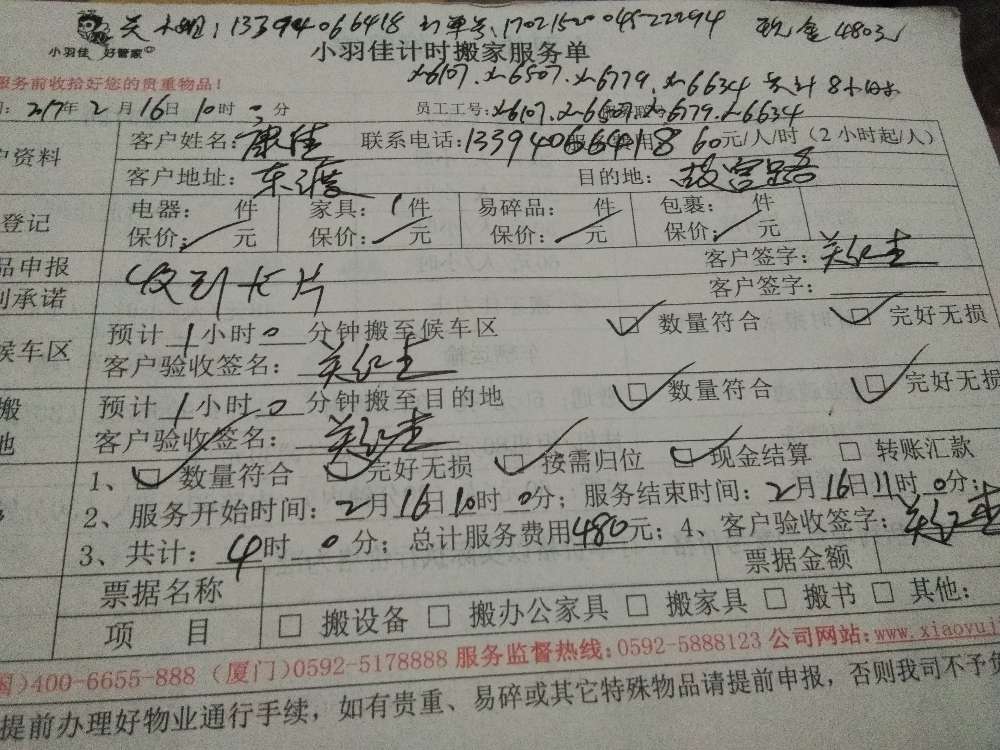 关小姐：13394066418 订单号：17021520004522294 现金480元
小羽佳 好管家
小羽佳计时搬家服务单
x6107.x6507.x6779.x6634 共计8小时
服务前收拾好您的贵重物品！
2017年2月16日10时0分 员工工号：x6107.x6507.x6779.x6634
户资料 客户姓名：康佳 联系电话：13394066418 60元/人/时（2小时起/人）
客户地址：东渡 目的地：故宫路
登记 电器： 件 家具：1件 易碎品： 件 包裹： 件
保价： 元 保价： 元 保价： 元 保价： 元
品申报 客户签字：关红圭
承诺 收到卡片 客户签字：
候车区 预计1小时0分钟搬至候车区 ☑ 数量符合 ☑ 完好无损
客户验收签名：关红圭
搬 预计1小时0分钟搬至目的地 ☑ 数量符合 ☑ 完好无损
地 客户验收签名：关红圭
1、☑ 数量符合 ☑ 完好无损 ☑ 按需归位 ☑ 现金结算 □ 转账汇款
2、服务开始时间：2月16日10时0分；服务结束时间：2月16日11时0分；
3、共计：4时0分；总计服务费用480元；4、客户验收签字：关红圭
票据名称 票据金额
项 目 □ 搬设备 □ 搬办公家具 □ 搬家具 □ 搬书 □ 其他：
国)400-6655-888 (厦门)0592-5178888 服务监督热线：0592-5888123 公司网站：www.xiaoyuj
提前办理好物业通行手续，如有贵重、易碎或其它特殊物品请提前申报，否则我司不予